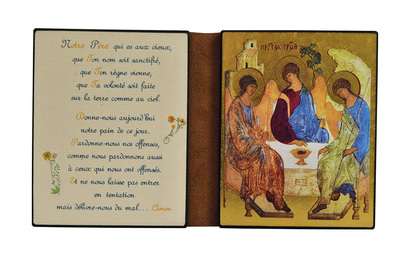 Notre Père qui es aux cieux,
que Ton nom soit sanctifié,
que Ton règne vienne,
que Ta volonté soit faite
sur la terre comme au ciel.
Donne-nous aujourd'hui
notre pain de ce jour.
Pardonne-nous nos offenses,
comme nous pardonnons aussi
à ceux qui nous ont offensés.
Et ne nous laisse pas entrer
en tentation
mais délivre-nous du mal... Amen.